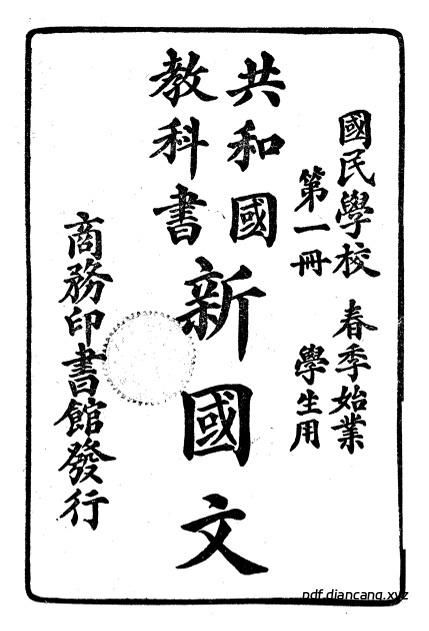 國民學校 春季始業
第一冊 學生用
共和國
教科書
新國文
商務印書館發行
pdf.diancang.xyz